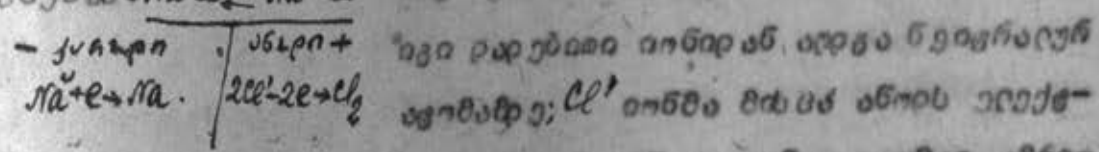 - კათოდი | ანოდი +
Na˙+e→Na. | 2Cl'-2e→Cl₂
იგი დადებითი იონიდან აღდგა ნეიტრალურ
ატომამდე; Cl' იონმა მისცა ანოდს ელექტ-